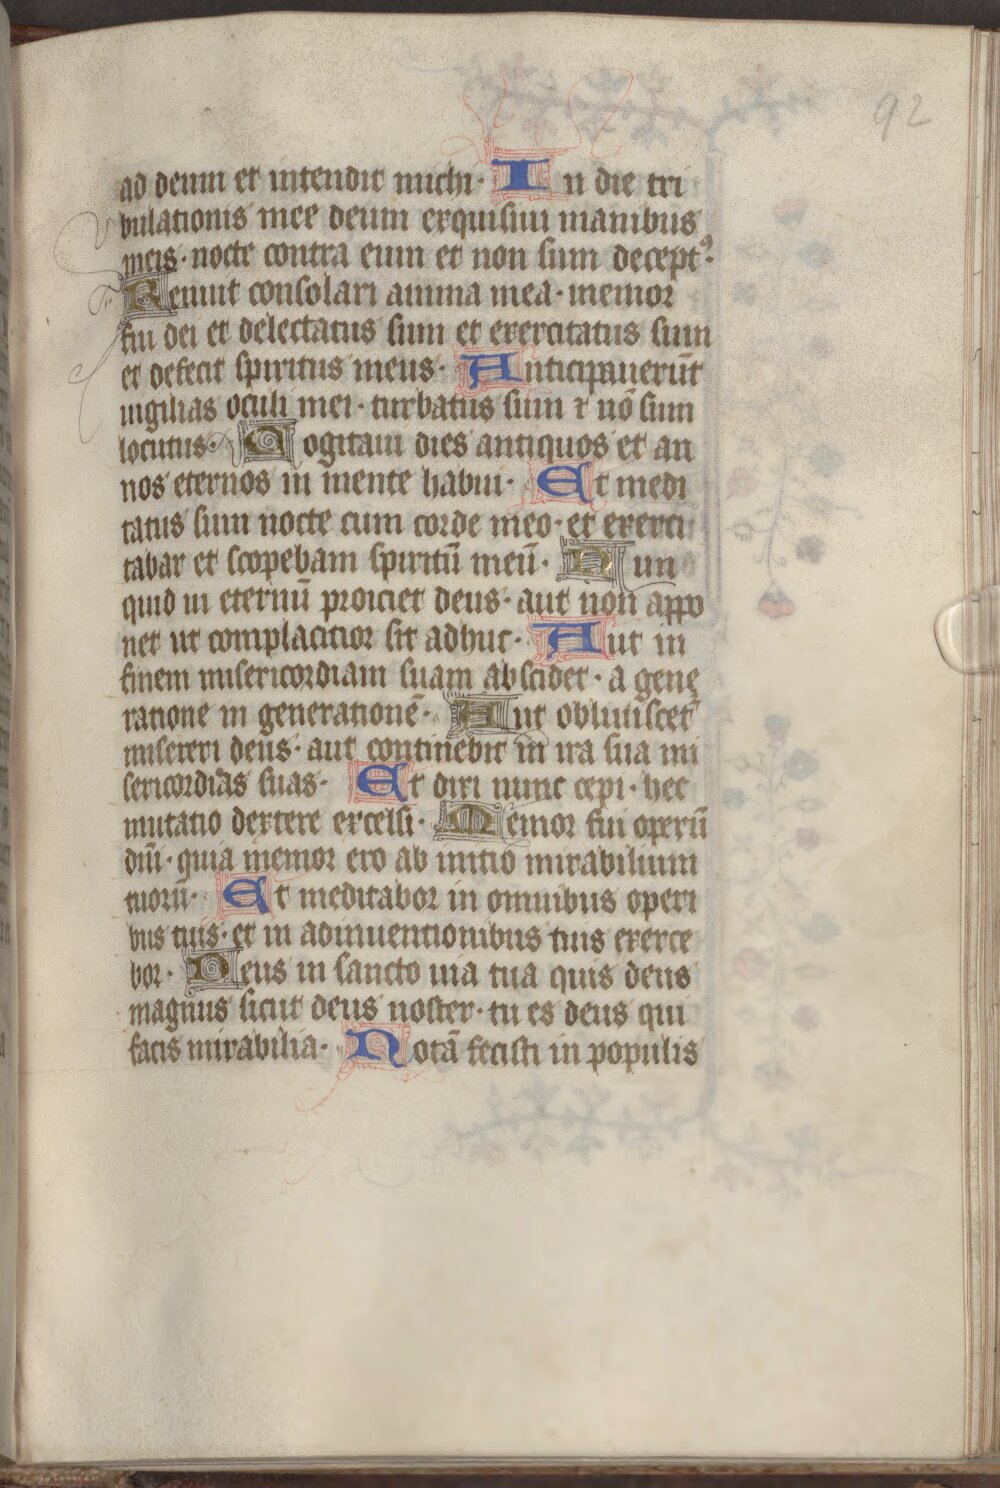 92
ad deum et intendit michi· In die tri
bulationis mee deum exquisiui manibus
meis· nocte contra eum et non sum deceptꝰ·
Renuit consolari anima mea· memor
fui dei et delectatus sum et exercitatus sum
et defecit spiritus meus· Anticipauerūt
uigilias oculi mei· turbatus sum ⁊ nō sum
locutus· Cogitaui dies antiquos et an
nos eternos in mente habui· Et medi
tatus sum nocte cum corde meo· et exerci
tabar et scopebam spiritū meū· Nun
quid in eternū proiciet deus· aut non appo
net ut complacitior sit adhuc· Aut in
finem misericordiam suam abscidet· a gene
ratione in generationē· Aut obliuiscet᷑
misereri deus· aut continebit in ira sua mi
sericordias suas· Et dixi nunc cepi· hec
mutatio dextere excelsi· Memor fui operū
dn̄i· quia memor ero ab initio mirabilium
tuorū· Et meditabor in omnibus operi
bus tuis· et in adinuentionibus tuis exerce
bor· Deus in sancto uia tua quis deus
magnus sicut deus noster· tu es deus qui
facis mirabilia· Notā fecisti in populis